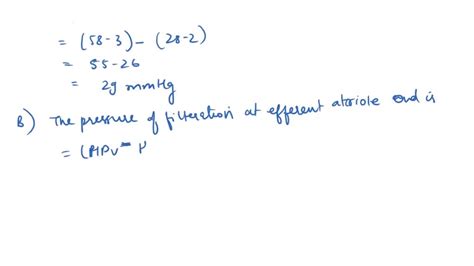 = (58-3) - (28-2)
= 55-26
= 29 mmHg
B) The pressure of filteration at efferent atoriole end is
= (HPv - P